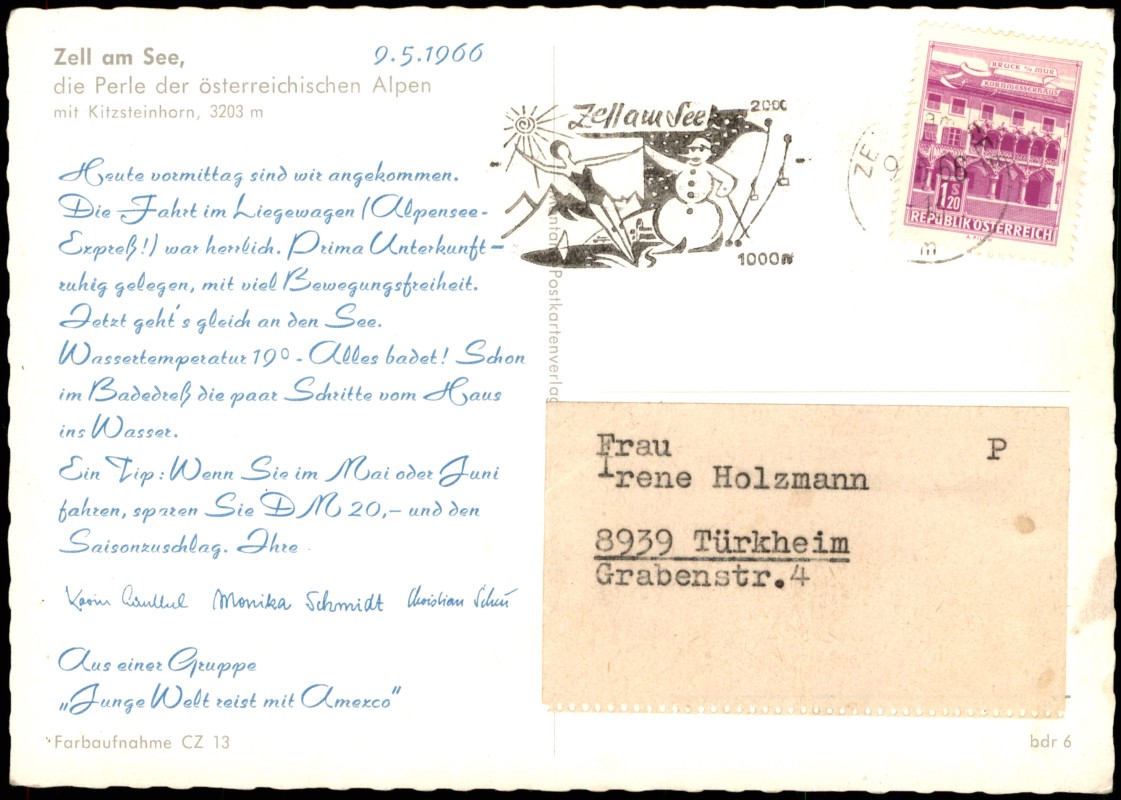 Zell am See,
9.5.1966
die Perle der österreichischen Alpen
mit Kitzsteinhorn, 3203 m
Heute vormittag sind wir angekommen.
Die Fahrt im Liegewagen (Alpensee-
Expreß!) war herrlich. Prima Unterkunft –
ruhig gelegen, mit viel Bewegungsfreiheit.
Jetzt geht's gleich an den See.
Wassertemperatur 19° - Alles badet! Schon
im Badedreß die paar Schritte vom Haus
ins Wasser.
Ein Tip: Wenn Sie im Mai oder Juni
fahren, sparen Sie DM 20,– und den
Saisonzuschlag. Ihre
Monika Schmidt Christian
Aus einer Gruppe
„Junge Welt reist mit Amexco"
Farbaufnahme CZ 13
Postkartenverlag
Zell am See
2000
1000m
BRUCK a/d MUR
KORNMESSERHAUS
1 S 20
REPUBLIK ÖSTERREICH
Frau P
Irene Holzmann
8939 Türkheim
Grabenstr.4
bdr 6